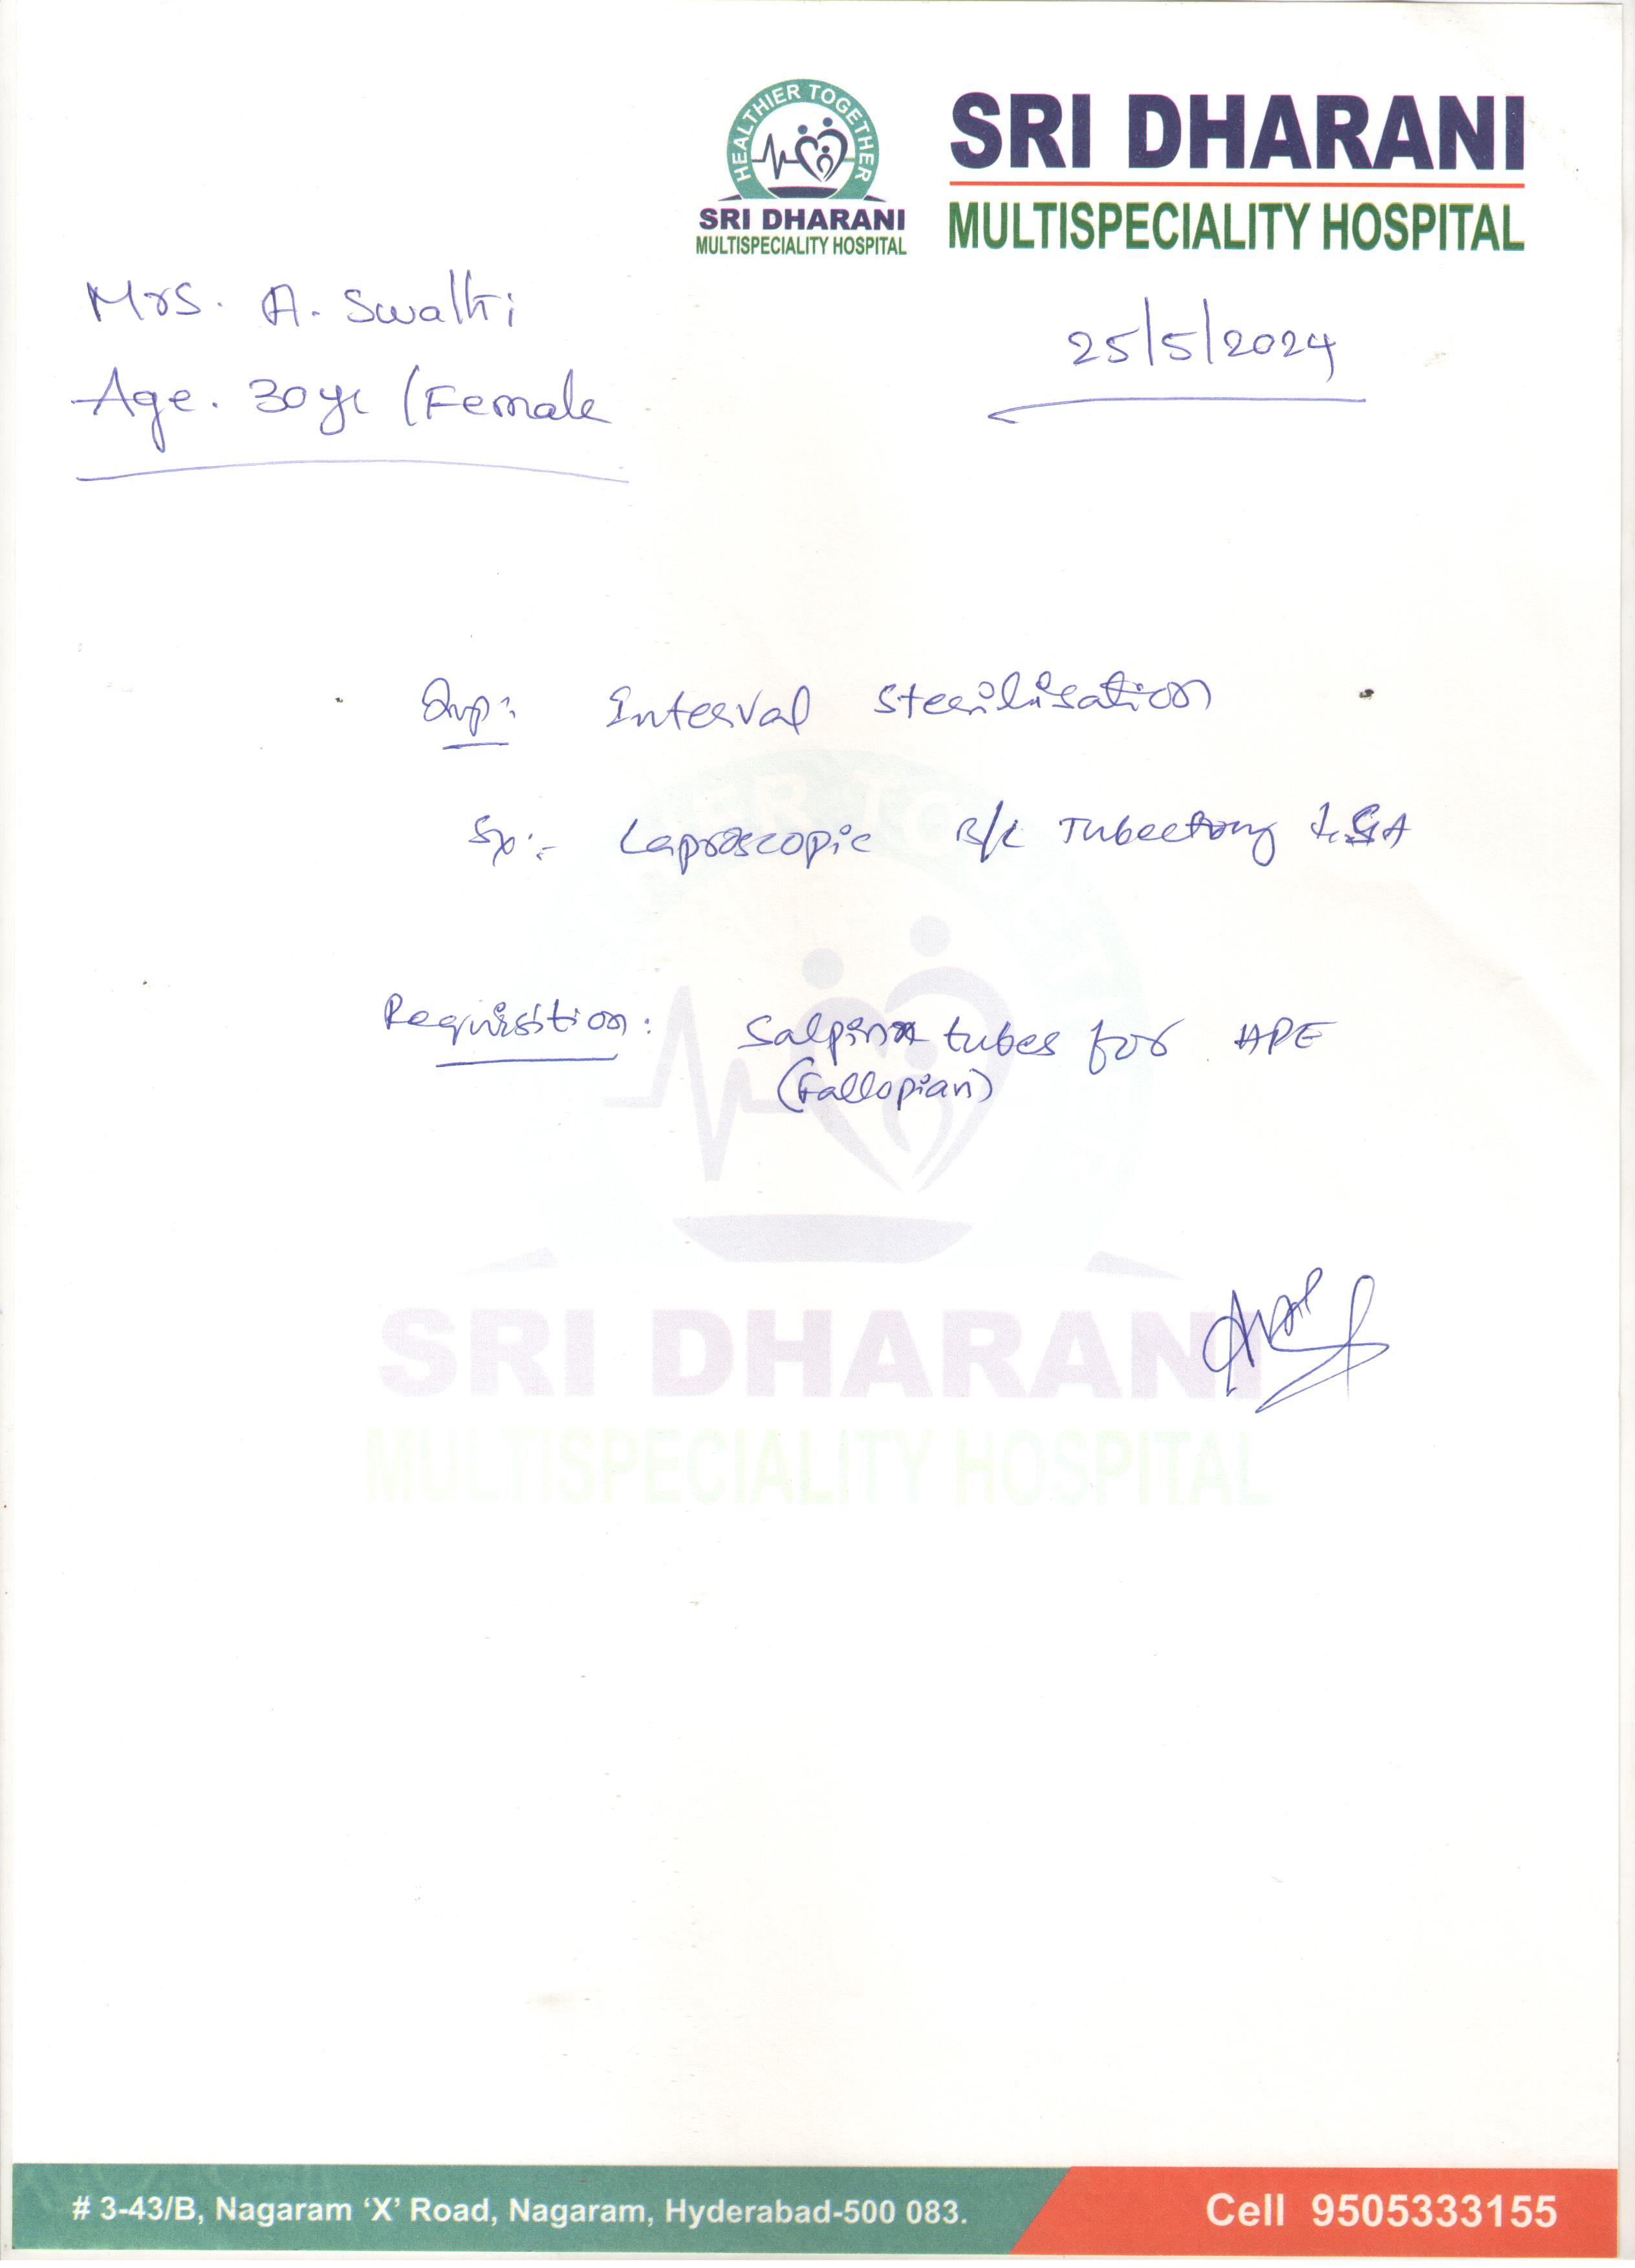 HEALTHIER TOGETHER
SRI DHARANI
MULTISPECIALITY HOSPITAL
SRI DHARANI
MULTISPECIALITY HOSPITAL
Mrs. A. Swathi
25/5/2024
Age. 30yr (Female
Imp:
Interval Sterilisation
Sx:- Laproscopic B/L Tubectomy
Requisition: Salpinx tubes for HPE
(Fallopian)
SRI DHARANI
MULTISPECIALITY HOSPITAL
# 3-43/B, Nagaram ‘X’ Road, Nagaram, Hyderabad-500 083.
Cell 9505333155